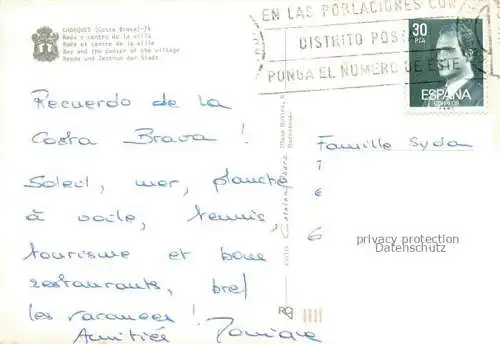 CADAQUES (Costa Brava)-74
Rada y centro de la villa
Rade et centre de la ville
Bay and the center of the village
Reede und Zentrum der Stadt
EN LAS POBLACIONES CON
DISTRITO POSTAL
PONGA EL NUMERO DE ESTE
30
PTA
ESPAÑA
CORREOS
Recuerdo de la
Costa Brava !
Soleil, mer, planche
à voile, tennis,
tourisme et bons
restaurants, bref
les vacances !
Amitiés
Famille Syda
privacy protection